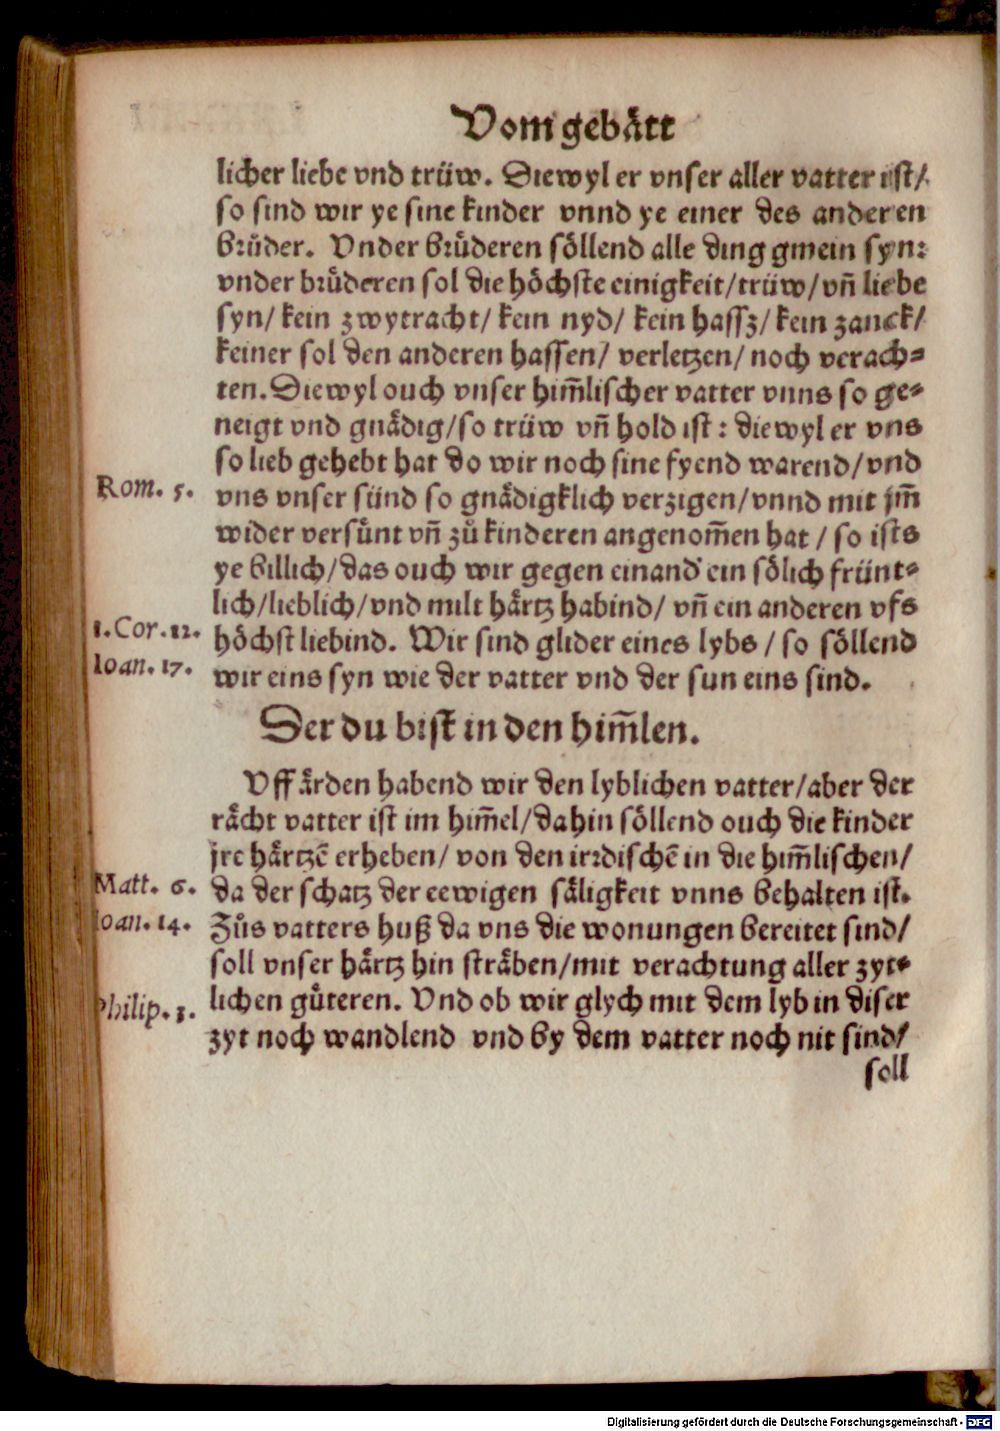 Vom gebätt
licher liebe vnd trüw. Diewyl er vnser aller vatter ist/
so sind wir ye sine kinder vnnd ye einer des anderen
brůder. Vnder brůderen söllend alle ding gmein syn:
vnder brůderen sol die höchste einigkeit/trüw/vñ liebe
syn/ kein zwytracht/ kein nyd/ kein hassz/ kein zanck/
keiner sol den anderen hassen/ verletzen/ noch verach⸗
ten. Diewyl ouch vnser him̃lischer vatter vnns so ge⸗
neigt vnd gnädig/so trüw vñ hold ist: diewyl er vns
so lieb gehebt hat do wir noch sine fyend warend/vnd
Rom. 5. vns vnser sünd so gnädigklich verzigen/vnnd mit jm̃
wider versůnt vñ zů kinderen angenom̃en hat / so ists
ye billich/das ouch wir gegen einand' ein sölich frünt⸗
lich/lieblich/vnd milt härtz habind/ vñ ein anderen vfs
1. Cor. 12. höchst liebind. Wir sind glider eines lybs / so söllend
Ioan. 17. wir eins syn wie der vatter vnd der sun eins sind.
Der du bist in den him̃len.
Vff ärden habend wir den lyblichen vatter/aber der
rächt vatter ist im him̃el/dahin söllend ouch die kinder
jre härtzē erheben/ von den irrdischē in die him̃lischen/
Matt. 6. da der schatz der eewigen säligkeit vnns behalten ist.
Ioan. 14. Zůs vatters huß da vns die wonungen bereitet sind/
soll vnser härtz hin sträben/mit verachtung aller zyt⸗
Philip. 3. lichen gůteren. Vnd ob wir glych mit dem lyb in diser
zyt noch wandlend vnd by dem vatter noch nit sind/
soll
Digitalisierung gefördert durch die Deutsche Forschungsgemeinschaft - DFG